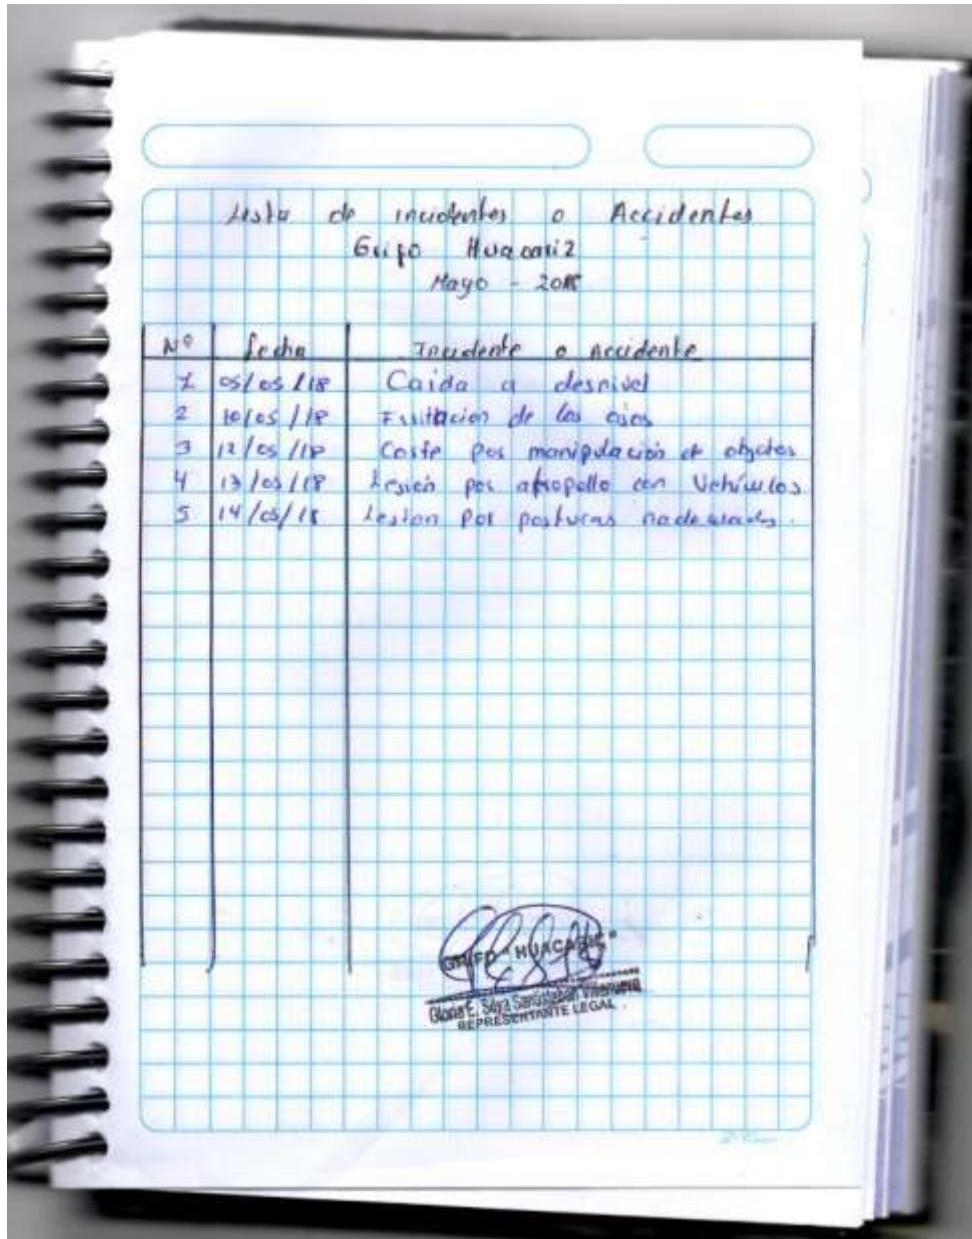 Lista de incidentes o Accidentes
Grifo Huacariz
Mayo - 2018
Nº fecha Incidente o accidente
1 05/05/18 Caida a desnivel
2 10/05/18 Irritacion de los ojos
3 12/05/18 Corte por manipulación de objetos
4 13/05/18 Lesión por atropello con Vehículos
5 14/05/18 Lesion por posturas
GRIFO "HUACARIZ"
Gloria E. Silva Santisteban
REPRESENTANTE LEGAL